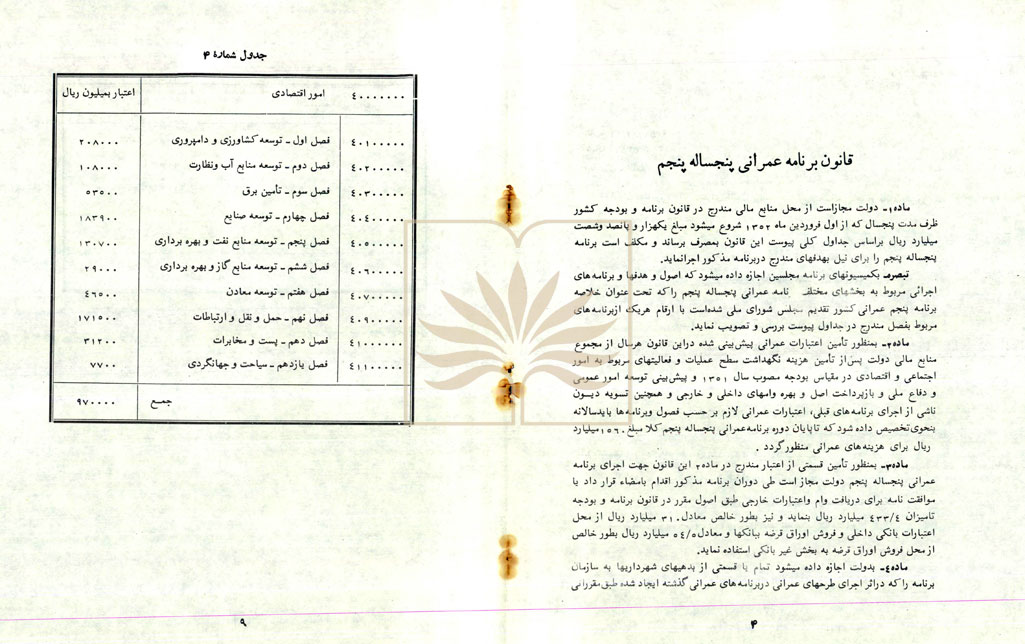 قانون برنامه عمرانی پنجساله پنجم
ماده۱ـ دولت مجازاست از محل منابع مالی مندرج در قانون برنامه و بودجه کشور
ظرف مدت پنجسال که از اول فروردین ماه ۱۳۵۲ شروع میشود مبلغ یکهزار و پانصد وشصت
میلیارد ریال براساس جداول کلی پیوست این قانون بمصرف برساند و مکلف است برنامه
پنجساله پنجم را برای نیل بهدفهای مندرج دربرنامه مذکور اجرانماید.
تبصره‍ـ بکمیسیونهای برنامه مجلسین اجازه داده میشود که اصول و هدفها و برنامه‌های
اجرائی مربوط به بخشهای مختلف نامه عمرانی پنجساله پنجم راکه تحت عنوان خلاصه
برنامه پنجم عمرانی کشور تقدیم مجلس شورای ملی شده‌است با ارقام هریک ازبرنامه‌های
مربوط بفصل مندرج در جداول پیوست بررسی و تصویب نماید.
ماده۲ـ بمنظور تأمین اعتبارات عمرانی پیش‌بینی شده دراین قانون هرسال از مجموع
منابع مالی دولت پس‌از تأمین هزینه نگهداشت سطح عملیات و فعالیتهای مربوط به امور
اجتماعی و اقتصادی در مقیاس بودجه مصوب سال ۱۳۵۱ و پیش‌بینی توسعه امور عمومی
و دفاع ملی و بازپرداخت اصل و بهره وامهای داخلی و خارجی و همچنین تسویه دیون
ناشی از اجرای برنامه‌های قبلی، اعتبارات عمرانی لازم بر حسب فصول وبرنامه‌ها بایدسالانه
بنحوی‌تخصیص داده شود که تاپایان دوره برنامه‌عمرانی پنجساله پنجم کلا مبلغ ۱۵۶۰میلیارد
ریال برای هزینه‌های عمرانی منظورگردد .
ماده۳ـ بمنظور تأمین قسمتی از اعتبار مندرج در ماده۲ این قانون جهت اجرای برنامه
عمرانی پنجساله پنجم دولت مجاز است طی دوران برنامه مذکور اقدام بامضاء قرار داد یا
موافقت نامه برای دریافت وام واعتبارات خارجی طبق اصول مقرر در قانون برنامه و بودجه
تامیزان ۴۳۳/۴ میلیارد ریال بنماید و نیز بطور خالص معادل ۳۱۰ میلیارد ریال از محل
اعتبارات بانکی داخلی و فروش اوراق قرضه ببانکها و معادل ۵۴/۵ میلیارد ریال بطور خالص
از محل فروش اوراق قرضه به بخش غیر بانکی استفاده نماید.
ماده۴ـ بدولت اجازه داده میشود تمام یا قسمتی از بدهیهای شهرداریها به سازمان
برنامه را که دراثر اجرای طرحهای عمرانی دربرنامه‌های عمرانی گذشته ایجاد شده طبق مقرراتی
۴
جدول شمارهٔ ۴
۴۰۰۰۰۰۰۰ امور اقتصادی اعتبار بمیلیون ریال
۴۰۱۰۰۰۰۰ فصل اول ـ توسعه کشاورزی و دامپروری ۲۰۸۰۰۰
۴۰۲۰۰۰۰۰ فصل دوم ـ توسعه منابع آب ونظارت ۱۰۸۰۰۰
۴۰۳۰۰۰۰۰ فصل سوم ـ تأمین برق ۵۳۵۰۰
۴۰۴۰۰۰۰۰ فصل چهارم ـ توسعه صنایع ۱۸۳۹۰۰
۴۰۵۰۰۰۰۰ فصل پنجم ـ توسعه منابع نفت و بهره برداری ۱۳۰۷۰۰
۴۰۶۰۰۰۰۰ فصل ششم ـ توسعه منابع گاز و بهره برداری ۲۹۰۰۰
۴۰۷۰۰۰۰۰ فصل هفتم ـ توسعه معادن ۴۶۵۰۰
۴۰۹۰۰۰۰۰ فصل نهم ـ حمل و نقل و ارتباطات ۱۷۱۵۰۰
۴۱۰۰۰۰۰۰ فصل دهم ـ پست و مخابرات ۳۱۲۰۰
۴۱۱۰۰۰۰۰ فصل یازدهم ـ سیاحت و جهانگردی ۷۷۰۰
جمع ۹۷۰۰۰۰
۹